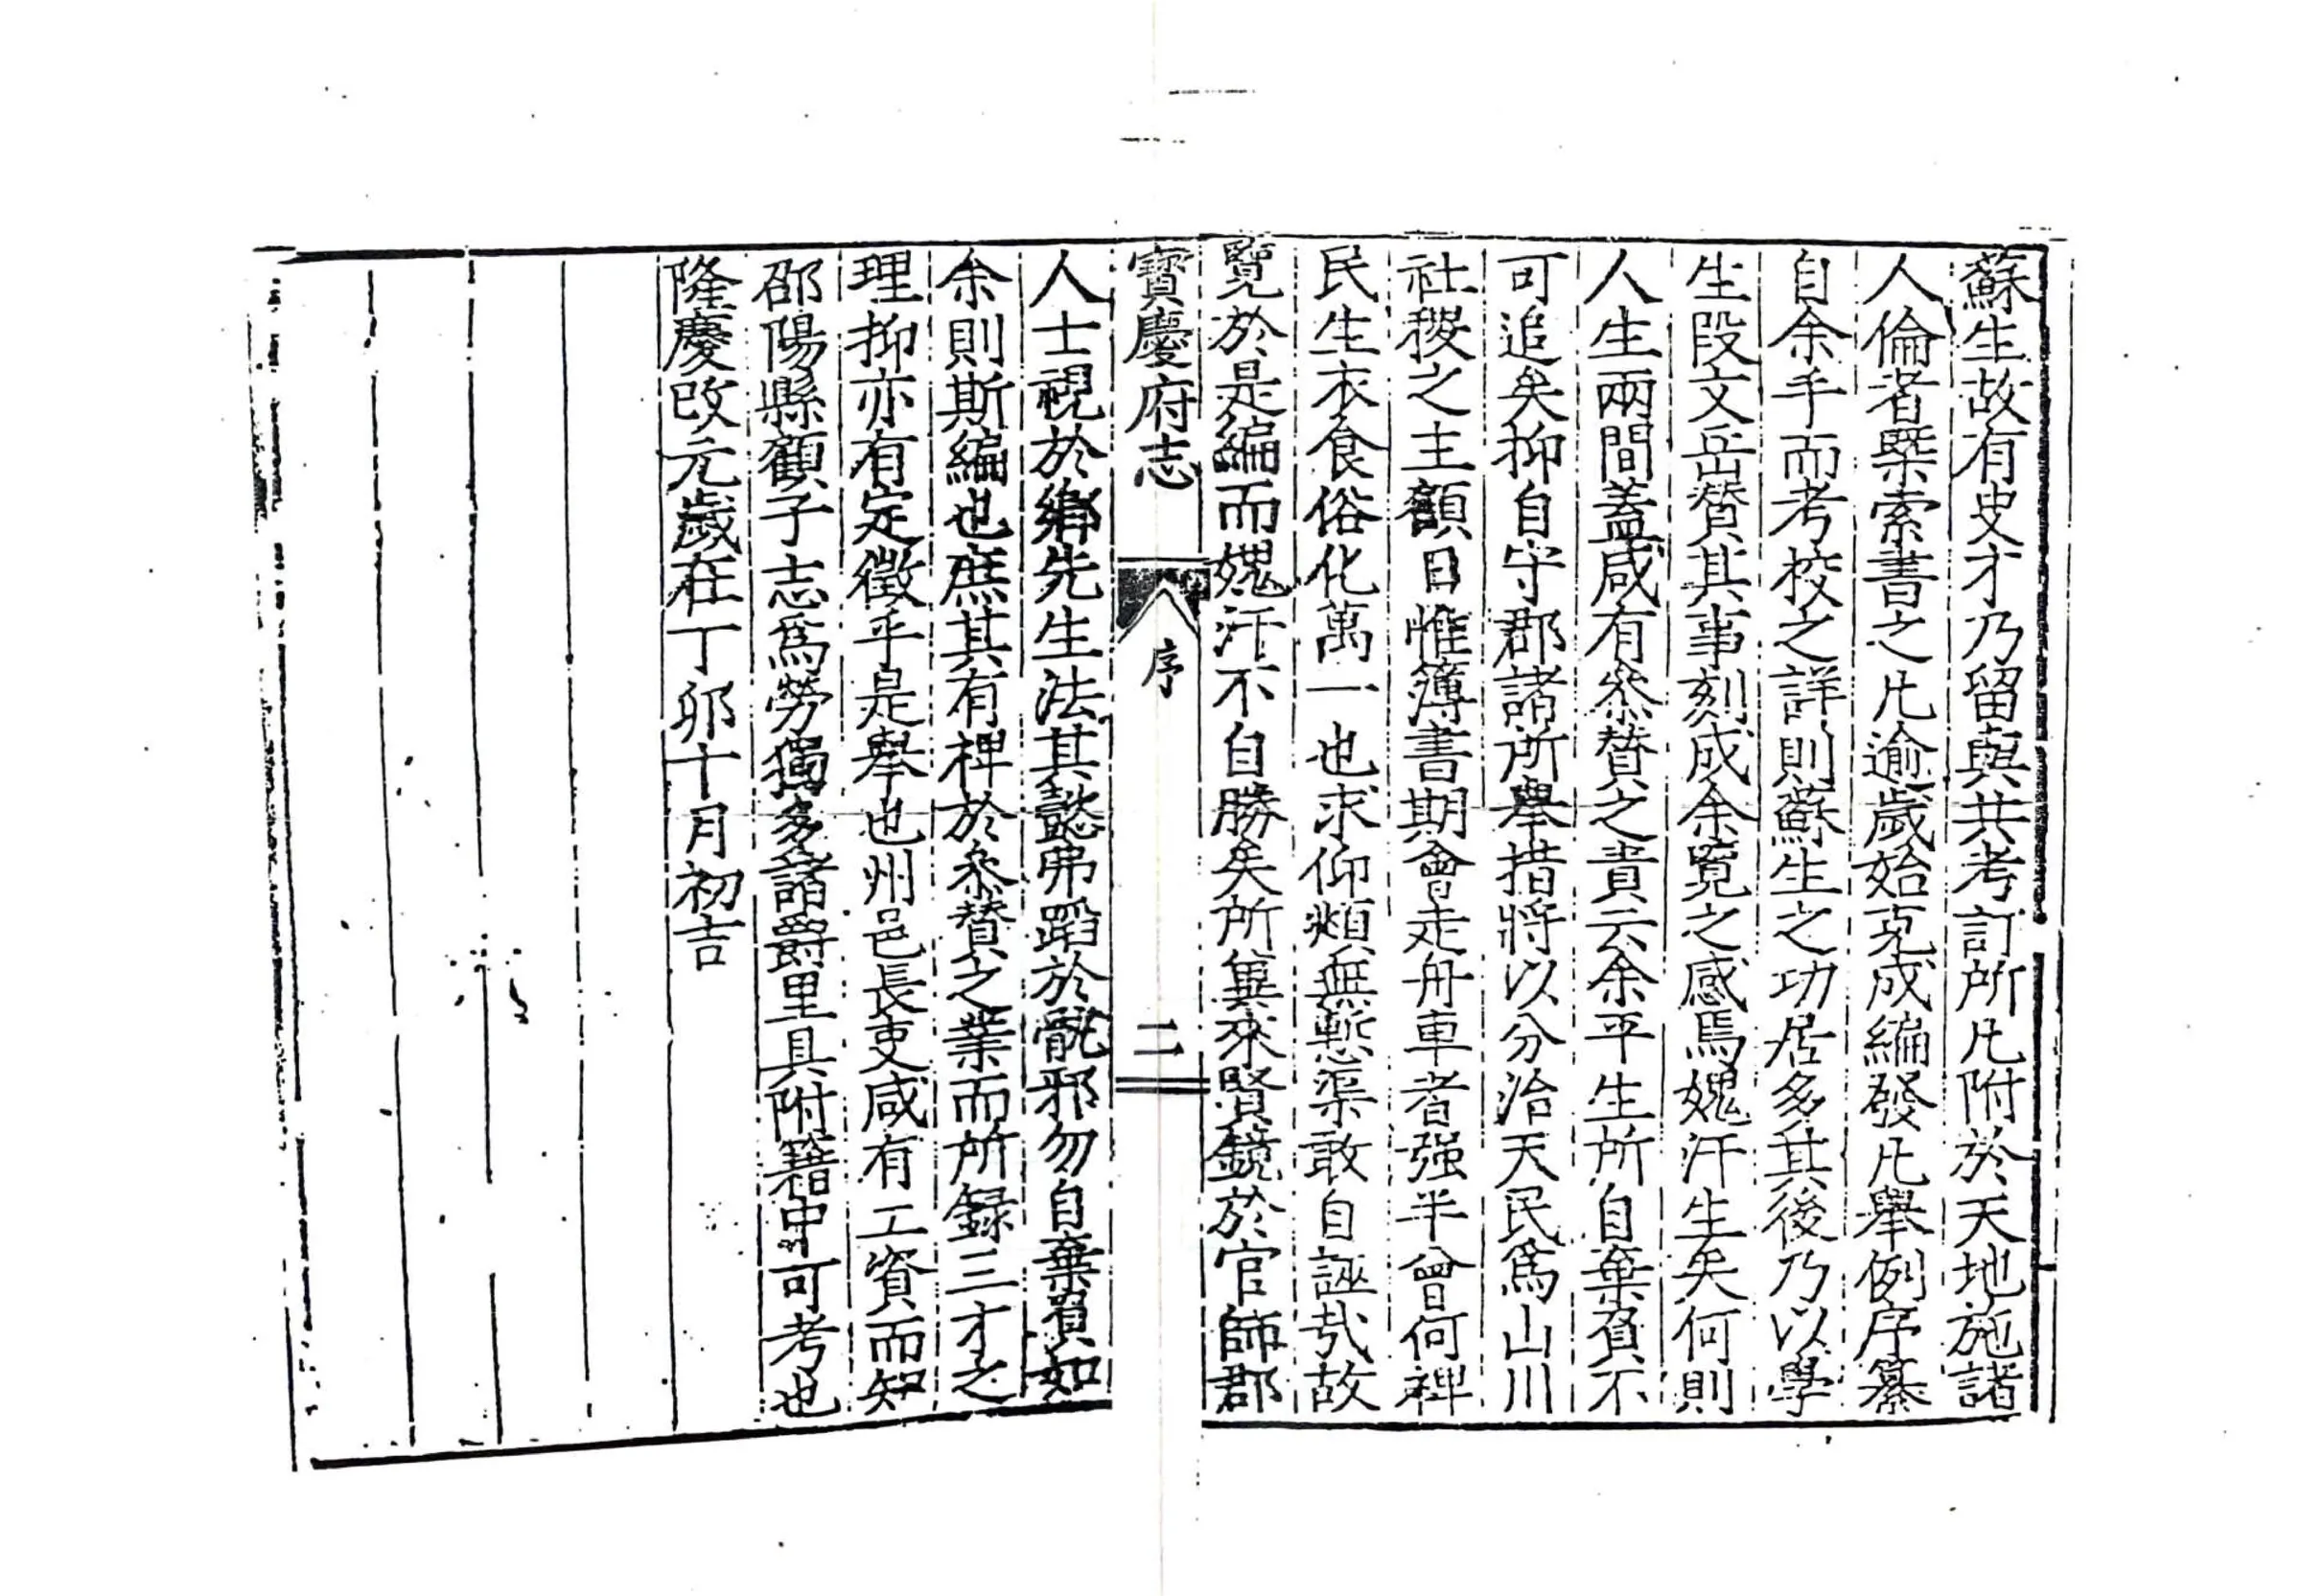 蘇生故有史才乃留與共考訂所凡附於天地施諸
人倫者槩索書之凡逾歲始克成編發凡舉例序纂
自余手而考校之詳則蘇生之功居多其後乃以學
生段文岳賛其事刻成余覽之感焉媿汗生矣何則
人生兩間蓋咸有叅賛之責云余平生所自棄者不
可追矣抑自守郡諸所舉措將以分治天民爲山川
社稷之主顧日惟簿書期會走舟車者强半曾何裨
民生衣食俗化萬一也求仰頫無慙渠敢自誣㢤故
覽於是編而媿汗不自勝矣所冀來賢鏡於官師郡
寳慶府志
序
二
人士視於鄉先生法其懿弗蹈於骫邪勿自棄負如
余則斯編也庶其有裨於叅賛之業而所録三才之
理抑亦有定徵乎是舉也州邑長吏咸有工資而知
邵陽縣顧子志爲勞獨多諸爵里具附籍中可考也
隆慶改元歲在丁卯十月初吉